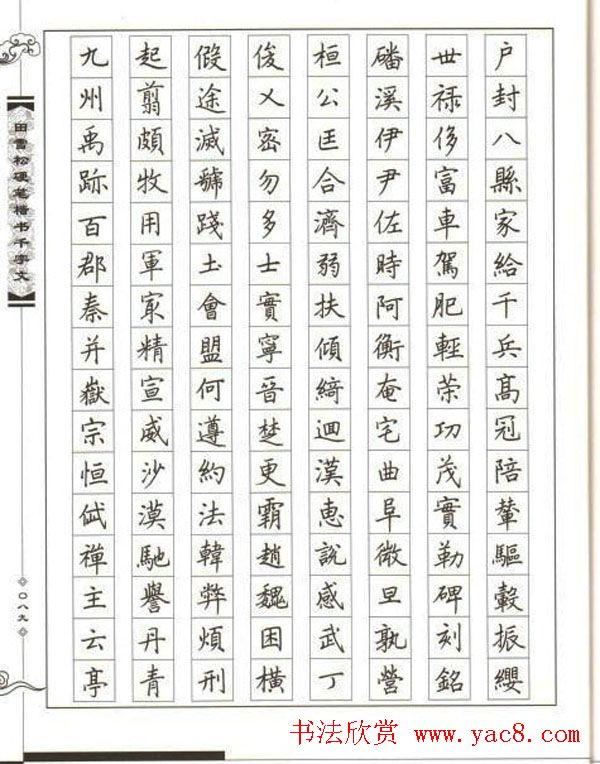 户封八縣家給千兵高冠陪輦驅轂振纓
世禄侈富車駕肥輕策功茂實勒碑刻銘
磻溪伊尹佐時阿衡奄宅曲阜微旦孰營
桓公匡合濟弱扶傾綺迴漢惠說感武丁
俊乂密勿多士寔寧晉楚更霸趙魏困横
假途滅虢踐土會盟何遵約法韓弊煩刑
起翦頗牧用軍冣精宣威沙漠馳譽丹青
九州禹跡百郡秦并嶽宗恒岱禪主云亭
田雪松硬笔楷书千字文
〇八九
书法欣赏 www.yac8.com